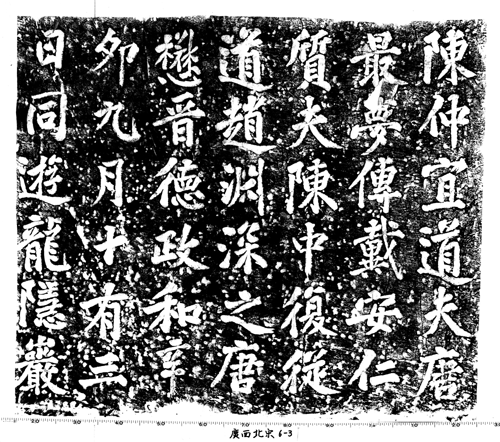 陳仲宜道夫唐
最夢傅戴安仁
質夫陳中復從
道趙淵深之唐
懋晉德政和辛
卯九月十有三
日同遊龍隱巖
廣西北京6-3